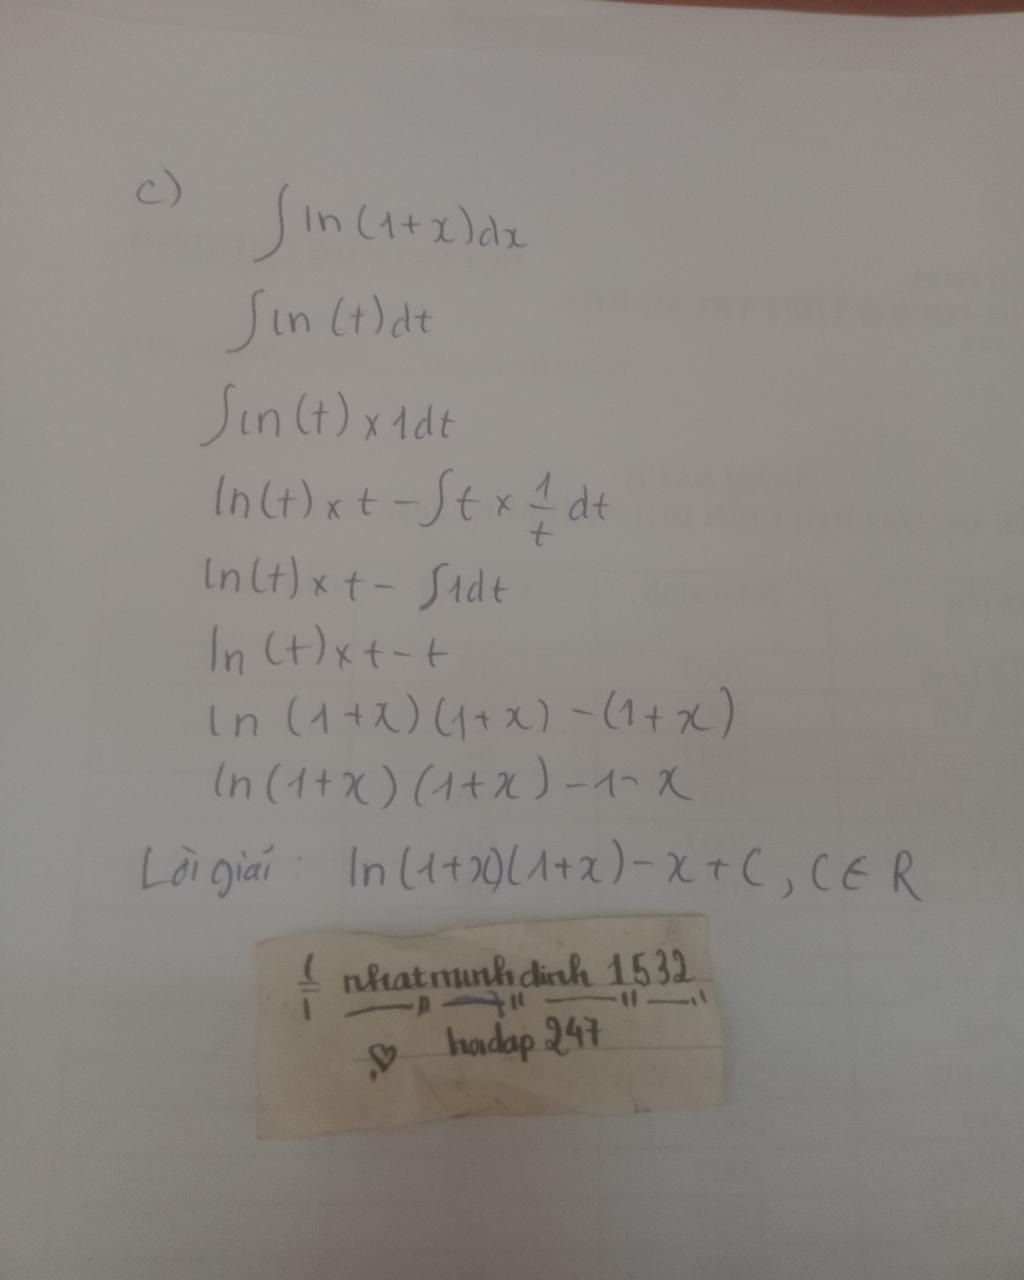 c) ∫ ln(1+x)dx
∫ ln(t)dt
∫ ln(t) x 1dt
ln(t) x t - ∫ t x 1/t dt
ln(t) x t - ∫ 1dt
ln(t) x t - t
ln (1+x)(1+x) - (1+x)
ln(1+x)(1+x) - 1 - x
Lời giải : ln(1+x)(1+x) - x + C, C ∈ R
nhatminhdinh 1532
hoidap 247